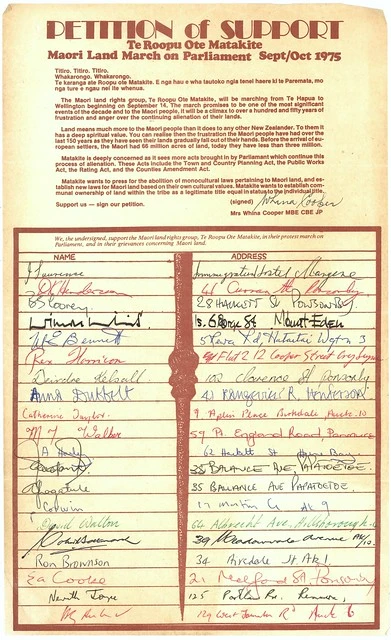 PETITION of SUPPORT
Te Roopu Ote Matakite
Maori Land March on Parliament Sept/Oct 1975
Titiro. Titiro. Titiro.
Whakarongo. Whakarongo.
Te karanga ate Roopu Ote Matakite. E nga hau e wha tautoko ngia tenei haere ki te Paremata, mo
nga ture e ngau nei ite whenua.
The Maori land rights group, Te Roopu Ote Matakite, will be marching from Te Hapua to
Wellington beginning on September 14. The march promises to be one of the most significant
events of the decade and to the Maori people, it will be a climax to over a hundred and fifty years of
frustration and anger over the continuing alienation of their lands.
Land means much more to the Maori people than it does to any other New Zealander. To them it
has a deep spiritual value. You can realise then the frustration the Maori people have had over the
last 150 years as they have seen their lands gradually fall out of their hands. Before the arrival of Eu-
ropean settlers, the Maori had 66 million acres of land, today they have less than three million.
Matakite is deeply concerned as it sees more acts brought in by Parliament which continue this
process of alienation. These Acts include the Town and Country Planning Act, the Public Works
Act, the Rating Act, and the Counties Amendment Act.
Matakite wants to press for the abolition of monocultural laws pertaining to Maori land, and es-
tablish new laws for Maori land based on their own cultural values. Matakite wants to establish com-
munal ownership of land within the tribe as a legitimate title equal in status to the individual title.
Support us — sign our petition. (signed) Whina Cooper
Mrs Whina Cooper MBE CBE JP
We, the undersigned, support the Maori land rights group, Te Roopu Ote Matakite, in their protest march on
Parliament, and in their grievances concerning Maori land.
NAME ADDRESS
J Lawrence Immigration Hostel Mangere
Henderson 41 Curran St Ponsonby
28 HACKETT St PONSONBY
15 George St Mount Eden
Bennett Hataitai Wgton 3
Rex Harrison Flat 2 12 Cooper Street
Deirdre 102 Clarence St Ponsonby
Anna 41 Rangeriri R. Henderson
Catherine Taylor. 9 Place Birkdale Auck. 10
M J Walker 59 Pt. England Road, Panmure
A 62 Hackett St Herne Bay
35 BALLANCE AVE, PAPATOETOE.
35 BALLANCE AVE PAPATOETOE.
17
David Walton 64 Albrecht Ave. Hillsborough
39
Ron Brownson 34 Airedale St. Ak 1
Cooke 21 St, Ponsonby
125 Portland Rd Remuera,
129 West Tamaki Rd Auck 6